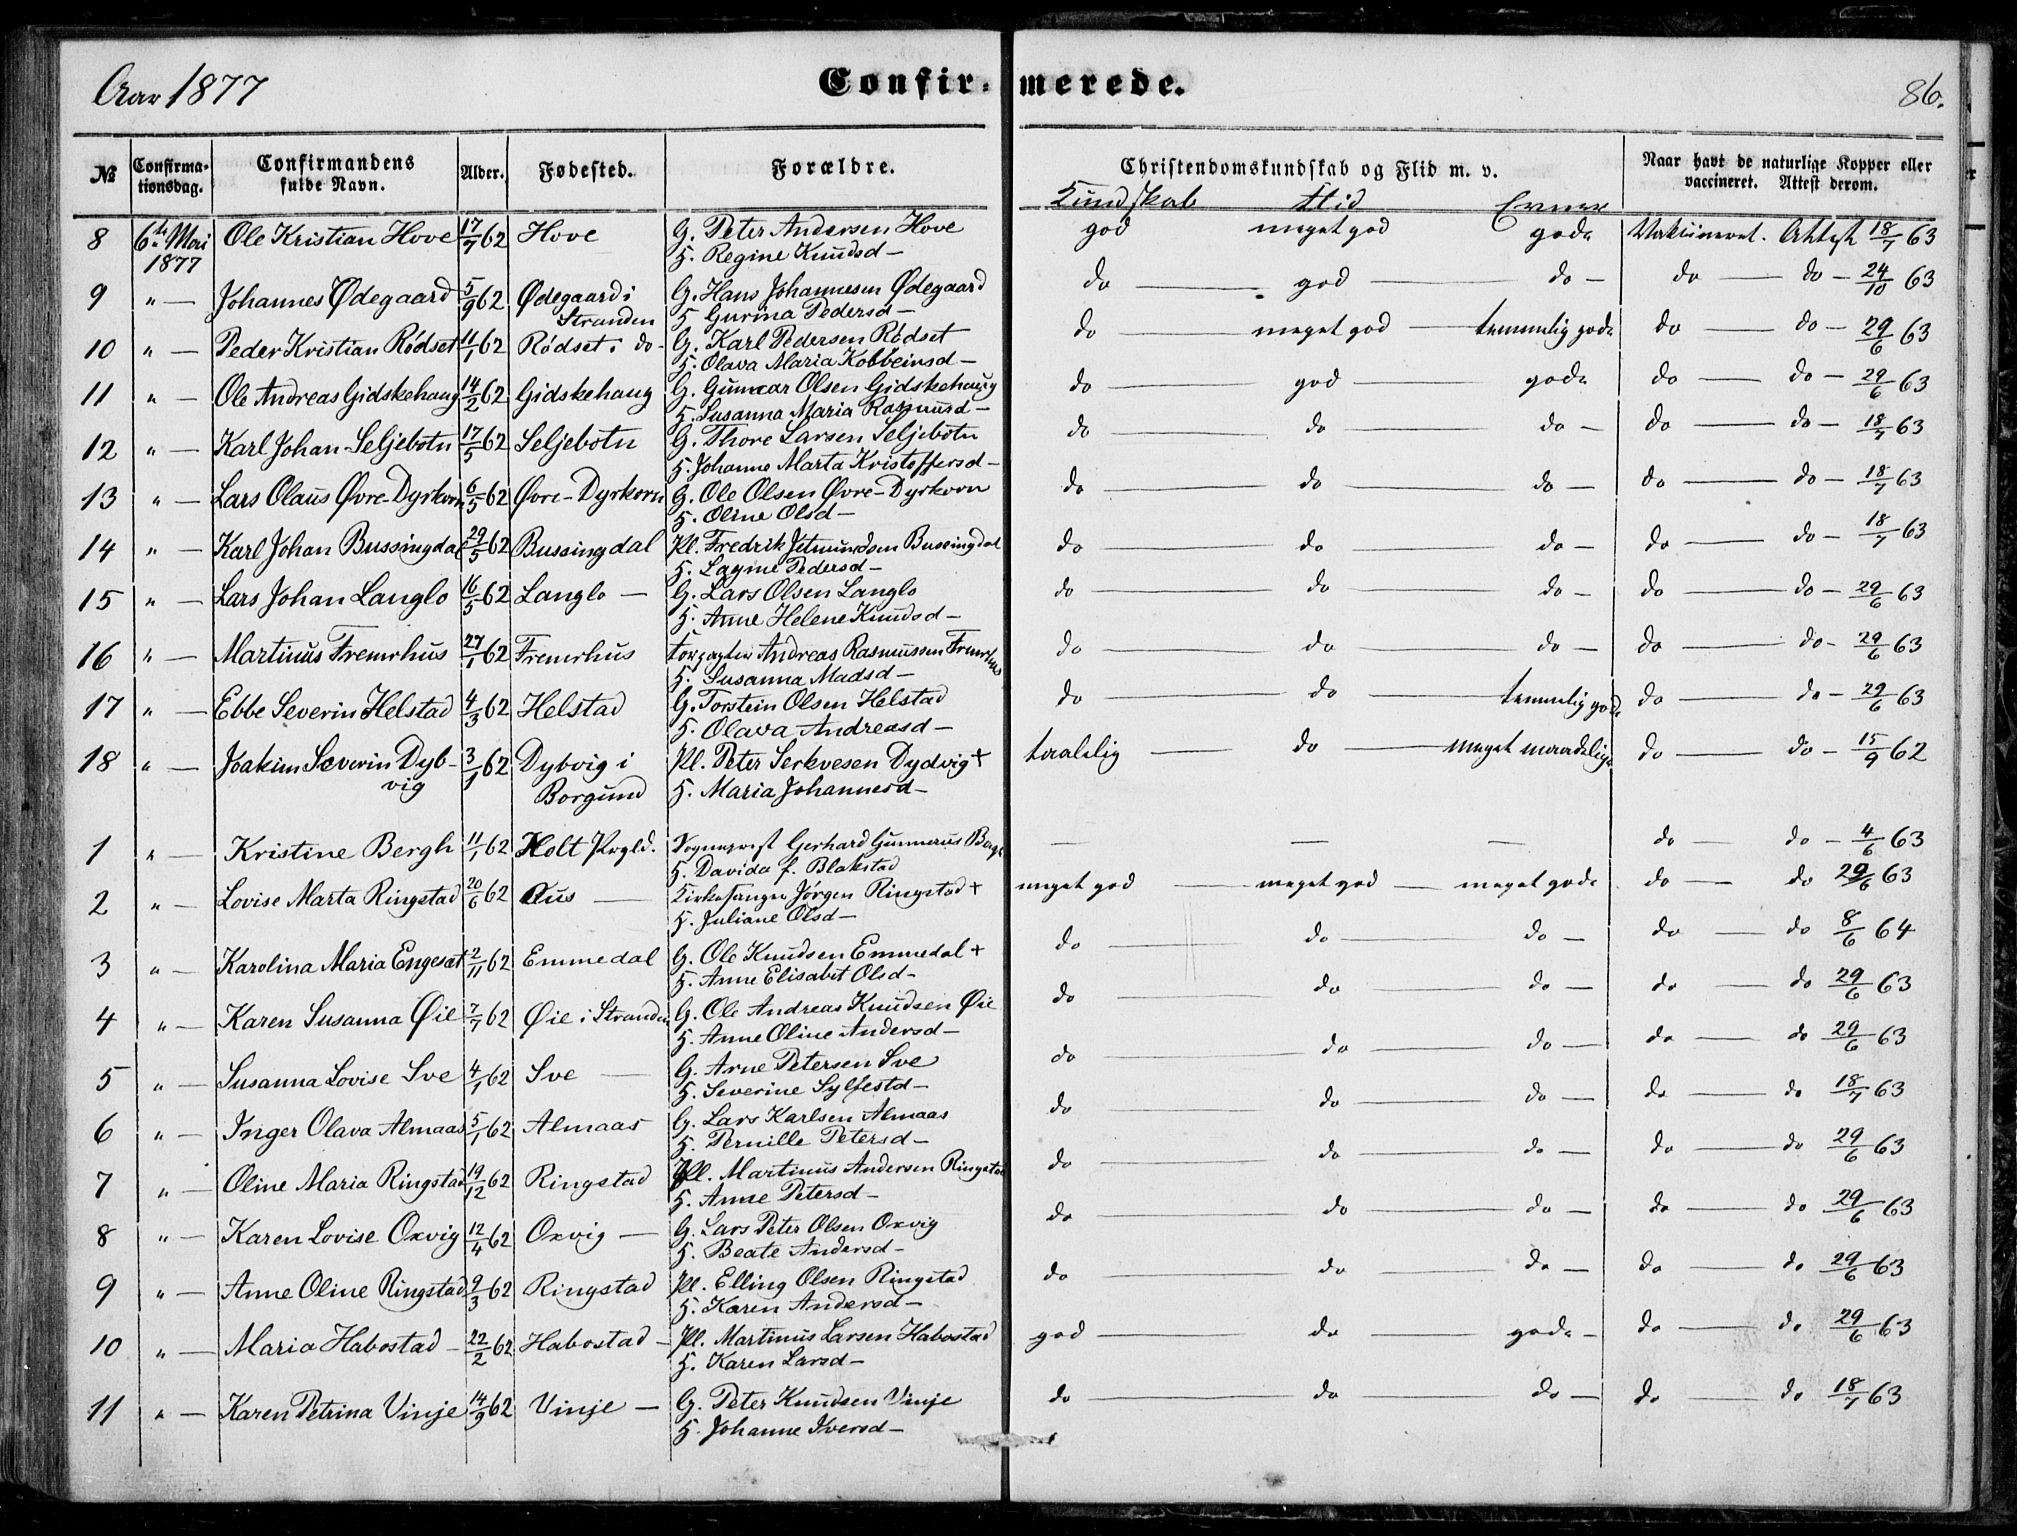 Aar 1877
Confir- merede.
86.
№ Confirma-tionsdag. Confirmandens fulde Navn. Alder. Fødested. Forældre. Christendomskundskab og Flid m. v. Naar havt de naturlige Kopper eller vaccineret. Attest derom.
Kundskab Flid Evner
8 6te Mai 1877 Ole Kristian Hove 17/7 62 Hove G. Peter Andersen Hove god meget god gode Vakcineret. Attest 18/7 63
H. Regine Knudsd —
9 " — Johannes Ødegaard 5/9 62 Ødegaard i Stranden G. Hans Johannesen Ødegaard do — god — do — do — do — 24/10 63
H. Gurina Pedersd —
10 " — Peder Kristian Rødset 11/1 62 Rødset i do — G. Karl Pedersen Rødset do — meget god — temmelig gode do — do — 29/6 63
H. Olava Maria Kolbeinsd —
11 " — Ole Andreas Gidskehaug 14/2 62 Gidskehaug G. Gunnar Olsen Gidskehaug do — god — gode do — do — 29/6 63
H. Susanna Maria Rasmusd —
12 " — Karl Johan Seljebotn 17/5 62 Seljebotn G. Thore Larsen Seljebotn do — do — do — do — do — 18/7 63
H. Johanne Marta Kristoffersd —
13 " — Lars Olaus Øvre-Dyrkorn 6/5 62 Øvre-Dyrkorn G. Ole Olsen Øvre-Dyrkorn do — do — do — do — do — 18/7 63
H. Oline Olsd —
14 " — Karl Johan Bussingdal 29/5 62 Bussingdal Pl. Fredrik Jetmundsen Bussingdal do — do — do — do — do — 18/7 63
H. Lagine Pedersd —
15 " — Lars Johan Langlo 16/5 62 Langlo — G. Lars Olsen Langlo do — do — do — do — do — 29/6 63
H. Anne Helene Knudsd —
16 " — Martinus Fremrhus 27/1 62 Fremrhus Forpagter Andreas Rasmussen Fremrhus do — do — do — do — do — 29/6 63
H. Susanna Madsd —
17 " — Ebbe Severin Helstad 4/3 62 Helstad G. Torstein Olsen Helstad do — do — temmelig gode do — do — 29/6 63
H. Olava Andreasd —
18 " — Joakim Severin Dybvig 3/1 62 Dybvig i Borgund Pl. Peter Serkvesen Dydvig + taalelig — do — meget maadelige do — do — 15/9 62
H. Maria Johannesd —
1 " — Kristine Bergh 11/1 62 Holt Prgld. Sogneprest Gerhard Gunnerus Bergh — — — do — do — 4/6 63
H. Davida f. Blakstad
2 " — Lovise Marta Ringstad 20/6 62 Aus — Kirkesanger Jørgen Ringstad + meget god — meget god — meget gode do — do 29/6 63
H. Juliane Olsd —
3 " — Karolina Maria Engeset 2/11 62 Emmedal G. Ole Knudsen Emmedal + do — do — do — do — do 8/6 64
H. Anne Elisabet Olsd —
4 " — Karen Susanna Øie 7/7 62 Øie i Stranden G. Ole Andreas Knudsen Øie do — do — do — do — do 29/6 63
H. Anne Oline Andersd —
5 " — Susanna Lovise Sve 4/1 62 Sve — G. Arne Petersen Sve do — do — do — do — do 29/6 63
H. Severine Sylfestd —
6 " — Inger Olava Almaas 5/1 62 Almaas G. Lars Karlsen Almaas do — do — do — do — do 18/7 63
H. Pernille Petersd —
7 " — Oline Maria Ringstad 19/12 62 Ringstad Pl. Martinus Andersen Ringstad do — do — do — do — do 29/6 63
H. Anne Petersd —
8 " — Karen Lovise Oxvig 12/4 62 Oxvig — G. Lars Peter Olsen Oxvig do — do — do — do — do 29/6 63
H. Beate Andersd —
9 " — Anne Oline Ringstad 9/3 62 Ringstad Pl. Elling Olsen Ringstad do — do — do — do — do 29/6 63
H. Karen Andersd —
10 " — Maria Habostad — 22/2 62 Habostad — Pl. Martinus Larsen Habostad god — do — gode — do — do 29/6 63
H. Karen Larsd —
11 " — Karen Petrina Vinje 14/9 62 Vinje — G. Peter Knudsen Vinje do — do — do — do — do 18/7 63
H. Johanne Iversd —